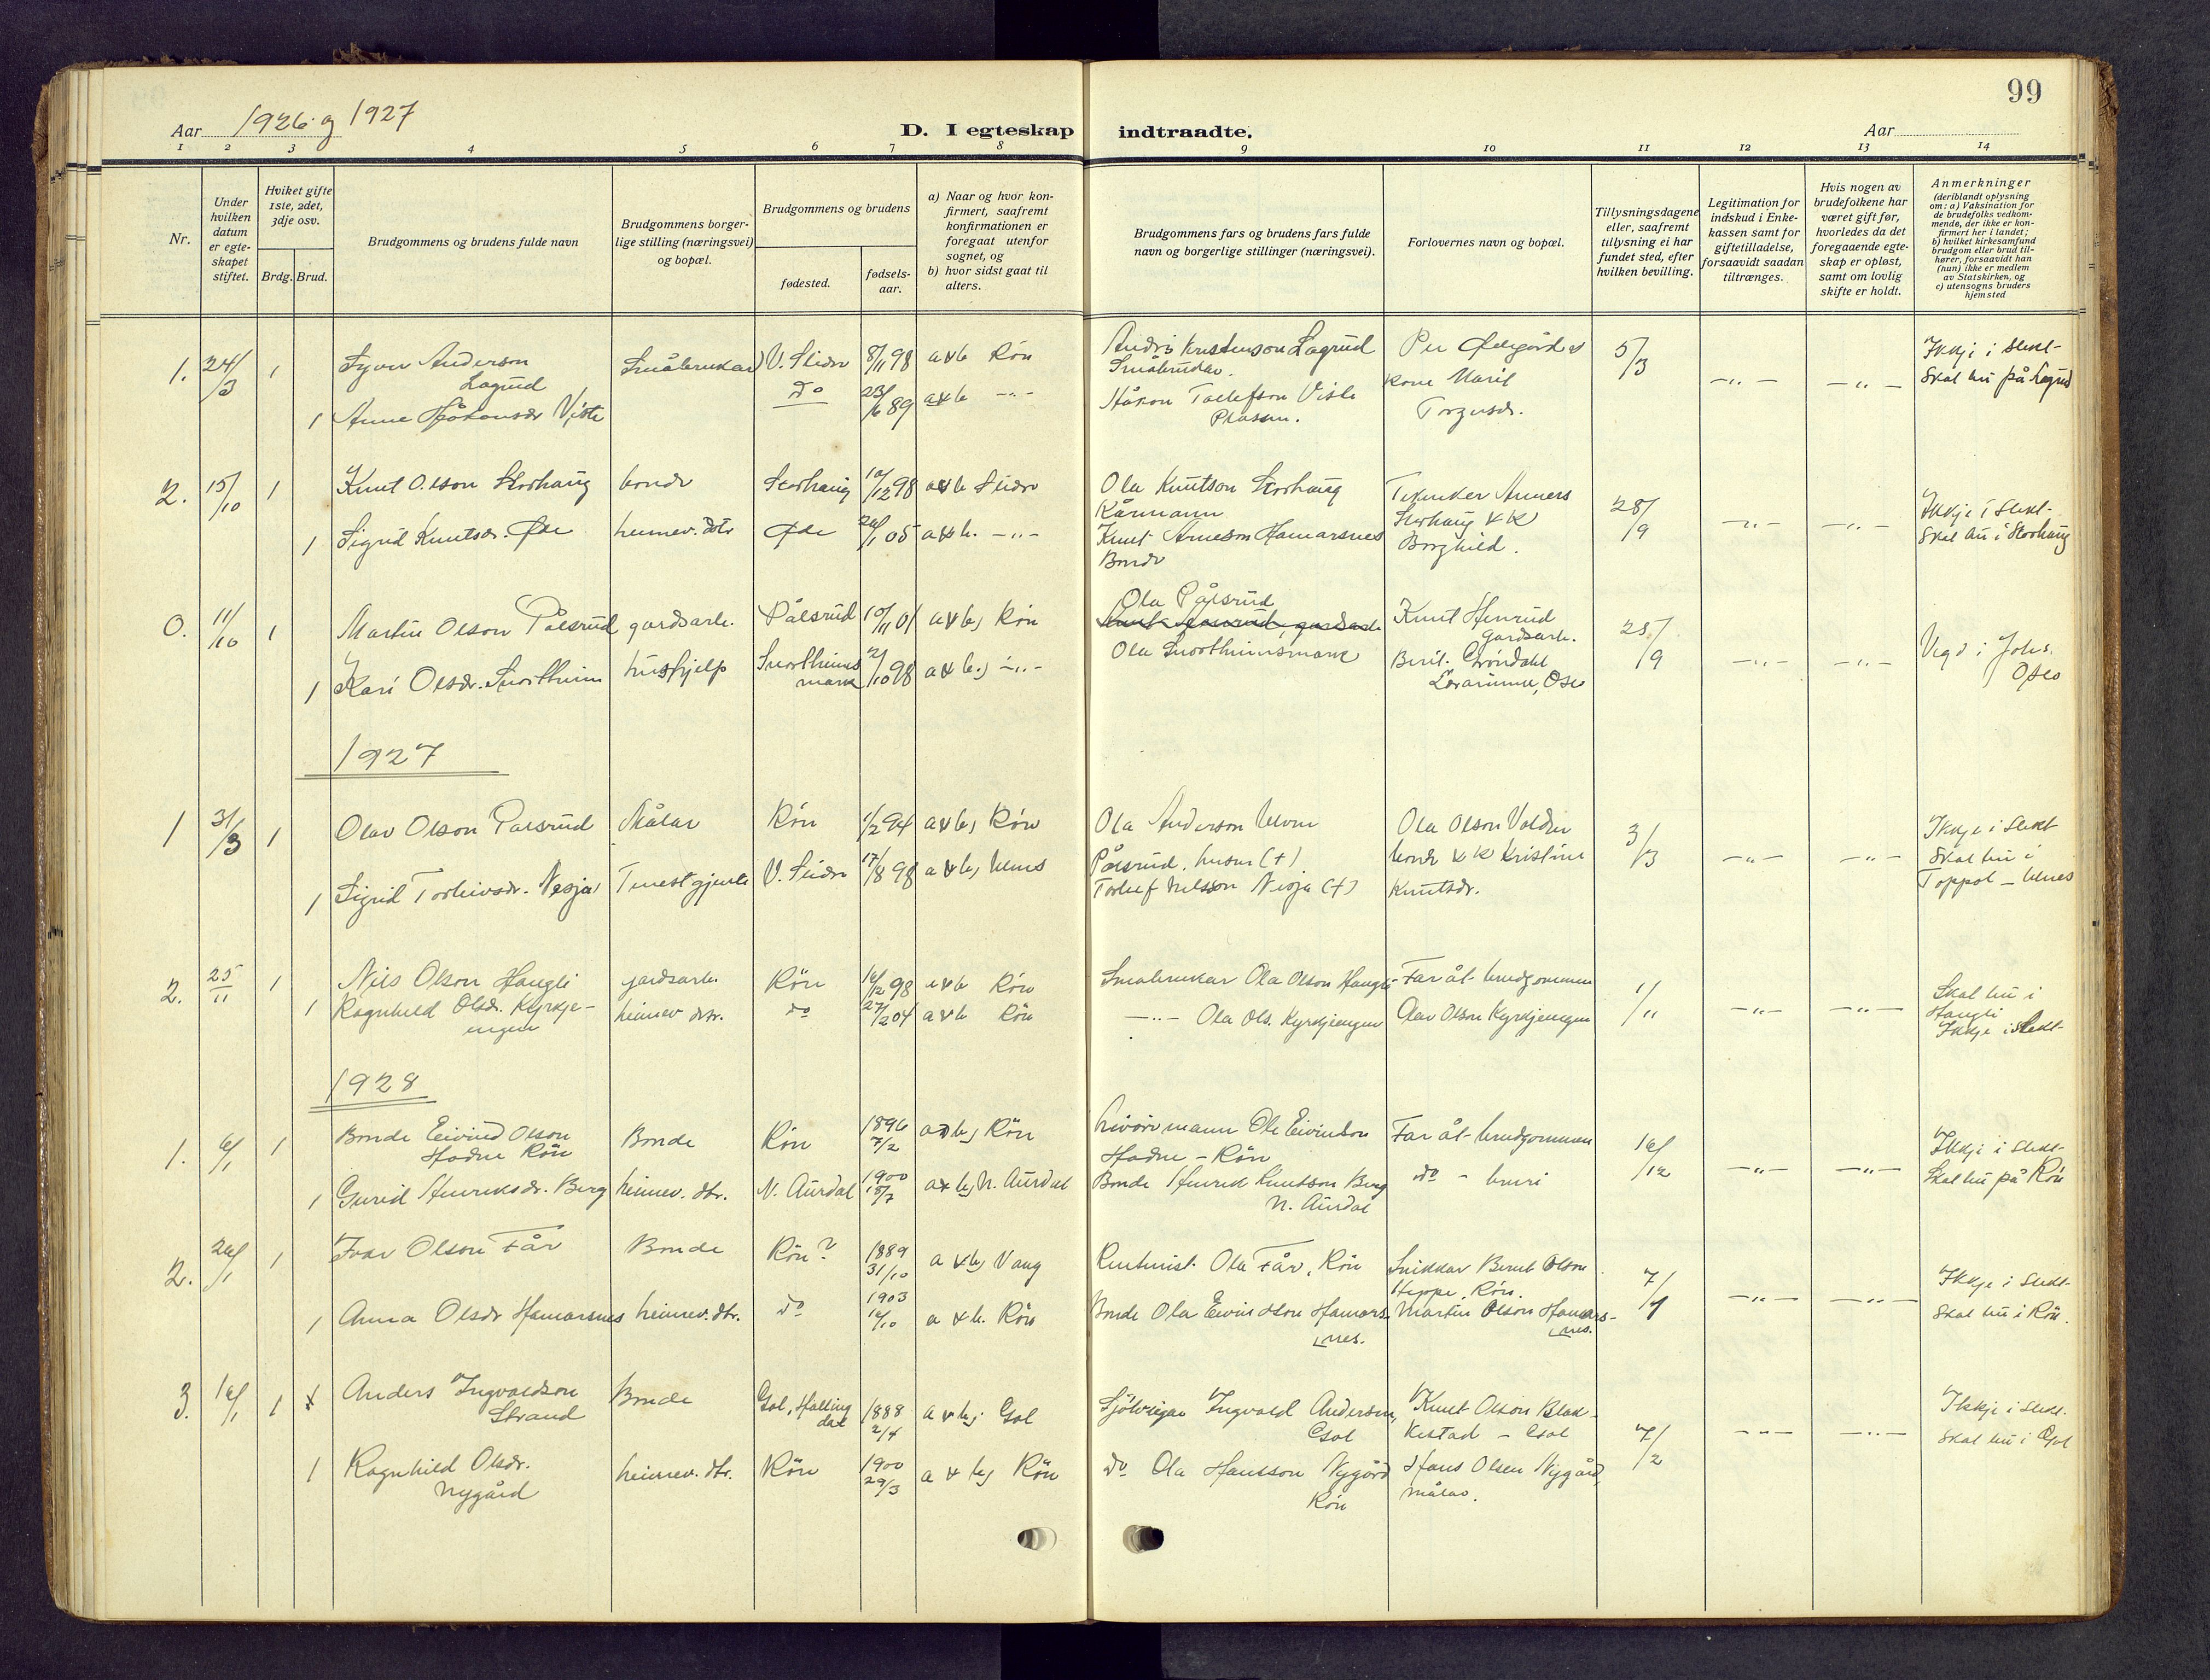 99
Aar 1926 og 1927
D. I egteskap indtraadte.
Aar
1 2 3 4 5 6 7 8 9 10 11 12 13 14
Nr.
Under
hvilken
datum
er egte-
skapet
stiftet.
Hviket gifte
1ste, 2det,
3dje osv.
Brdg. Brud.
Brudgommens og brudens fulde navn
Brudgommens borger-
lige stilling (næringsvei)
og bopæl.
Brudgommens og brudens
fødested.
fødsels-
aar.
a) Naar og hvor kon-
firmert, saafremt
konfirmationen er
foregaat utenfor
sognet, og
b) hvor sidst gaat til
alters.
Brudgommens fars og brudens fars fulde
navn og borgerlige stillinger (næringsvei).
Forlovernes navn og bopæl.
Tillysningsdagene
eller, saafremt
tillysning ei har
fundet sted, efter
hvilken bevilling.
Legitimation for
indskud i Enke-
kassen samt for
giftetilladelse,
forsaavidt saadan
tiltrænges.
Hvis nogen av
brudefolkene har
været gift før,
hvorledes da det
foregaaende egte-
skap er opløst,
samt om lovlig
skifte er holdt.
Anmerkninger
(deriblandt oplysning
om: a) Vaksination for
de brudefolks vedkom-
mende, der ikke er kon-
firmert her i landet;
b) hvilket kirkesamfund
brudgom eller brud til-
hører, forsaavidt han
(hun) ikke er medlem
av Statskirken, og
c) utensogns bruders
hjemsted
1. 24/3 1 Syver Anderson Småbrukar V. Slidre 8/11 98 a & b Røn
Lagrud
1 Anne Håkonsdr Viste do 23/6 89 a & b -"-
Andris Kristenson Lagrud
Småbrukar.
Håkon Tollefson Viste
Plassm.
Per Ødegård &
kone Marit
Torgersdr.
5/3 -"- -"-
Ikkje i slekt-
Skal bu på Lagrud
2. 15/10 1 Knut Olson Storhaug bonde Storhaug 10/12 98 a & b Slidre
1 Sigrid Knutsdr. Øde heimev. dtr Øde 26/1 05 a & b. -"-
Ola Knutson Storhaug
Kårmann
Knut Arneson Hamarsnes
Bonde
Tekniker Anners
Storhaug & K
Borghild.
28/9 -"- -"-
Ikkje i slekt-
Skal bu i Storhaug
0. 11/10 1 Martin Olson Pålsrud gardsarb. Pålsrud 10/11 01 a & b, Røn
1 Kari Olsdr. Snortheim hushjelp Snortheims 2/10 98 a & b, -"-
mark
Ola Pålsrud
Ola Snortheimsmark
Knut Henrud
gardsarb.
Berit Grøndahl
Lærarinne, Oslo
25/9 -"- -"-
Vigd i Johs.
Oslo
1927
1 31/3 1 Olav Olson Pålsrud Målar Røn 1/2 94 a & b, Røn
1 Sigrid Torleivsdr. Nesja Tenestgjente V. Slidre 17/8 98 a & b, Ulnes
Ola Anderson Ulven
Pålsrud, husm (+)
Torleif Nilsson Nesja (+)
Ola Olson Volden
bonde & K Kristine
Knutsdr.
3/3 -"- -"-
Ikkje i slekt
Skal bu i
Toppol - Ulnes
2. 25/11 1 Nils Olson Haugli gardsarb. Røn 16/12 98 a & b Røn
1 Ragnhild Olsdr. Kyrkje- heimev dtr. do 27/2 04 a & b Røn
engen
Småbrukar Ola Olson Haugli
-"- Ola Ols. Kyrkjeengen
Far åt brudgommen
Olav Olson Kyrkjeengen
1/11 -"- -"-
Skal bu i
Haugli
Ikkje i slekt-
1928
1. 6/1 1 Bonde Eivind Olson Bonde Røn 1896 a & b, Røn
Hadne Røn 7/2
1 Gurid Henriksdr. Berg heimev. dtr. N. Aurdal 1900 a & b, N. Aurdal
15/7
Livørmann Ole Eivindson
Hadne - Røn
Bonde Henrik Knutson Berg
N. Aurdal
Far åt brudgommen
do - bruri
16/12 -"- -"-
Ikkje i slekt-
Skal bu på Røn
2. 26/1 1 Ivar Olson Får Bonde Røn? 1889 a & b, Vang
31/10
1 Anna Olsdr Hamarsnes heimev. dtr. do 1903 a & b. Røn
16/10
Rentenist Ola Får, Røn
Bonde Ola Eivindson Hamars-
nes.
Snikkar Bernt Olson
Heppe, Røn.
Martin Olson Hamars-
nes.
7/1 -"- -"-
Ikkje i slekt-
Skal bu i Røn.
3. 16/1 1 Anders Ingvaldson Bonde Gol, Halling 1888 a & b, Gol
Strand dal 2/4
1 Ragnhild Olsdr. heimev. dtr. Røn 1900 a & b, Røn
Nygård 29/3
Sjølveigar Ingvald Anderson,
Gol
do Ola Hansson Nygård
Røn
Knut Olson Blak-
kestad - Gol
Hans Olsen Nygård,
målar.
7/2 -"- -"-
Ikkje i slekt.
Skal bu i Gol